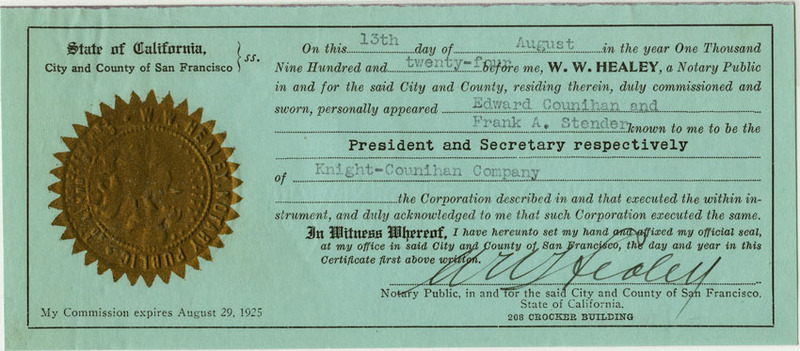 State of California,
City and County of San Francisco } ss.
On this 13th day of August in the year One Thousand
Nine Hundred and twenty-four before me, W. W. HEALEY, a Notary Public
in and for the said City and County, residing therein, duly commissioned and
sworn, personally appeared Edward Counihan and
Frank A. Stender known to me to be the
President and Secretary respectively
of Knight-Counihan Company
the Corporation described in and that executed the within in-
strument, and duly acknowledged to me that such Corporation executed the same.
In Witness Whereof, I have hereunto set my hand and affixed my official seal,
at my office in said City and County of San Francisco, the day and year in this
Certificate first above written.
W W Healey
Notary Public, in and for the said City and County of San Francisco.
State of California.
208 CROCKER BUILDING
W. W. HEALEY, NOTARY PUBLIC
My Commission expires August 29, 1925